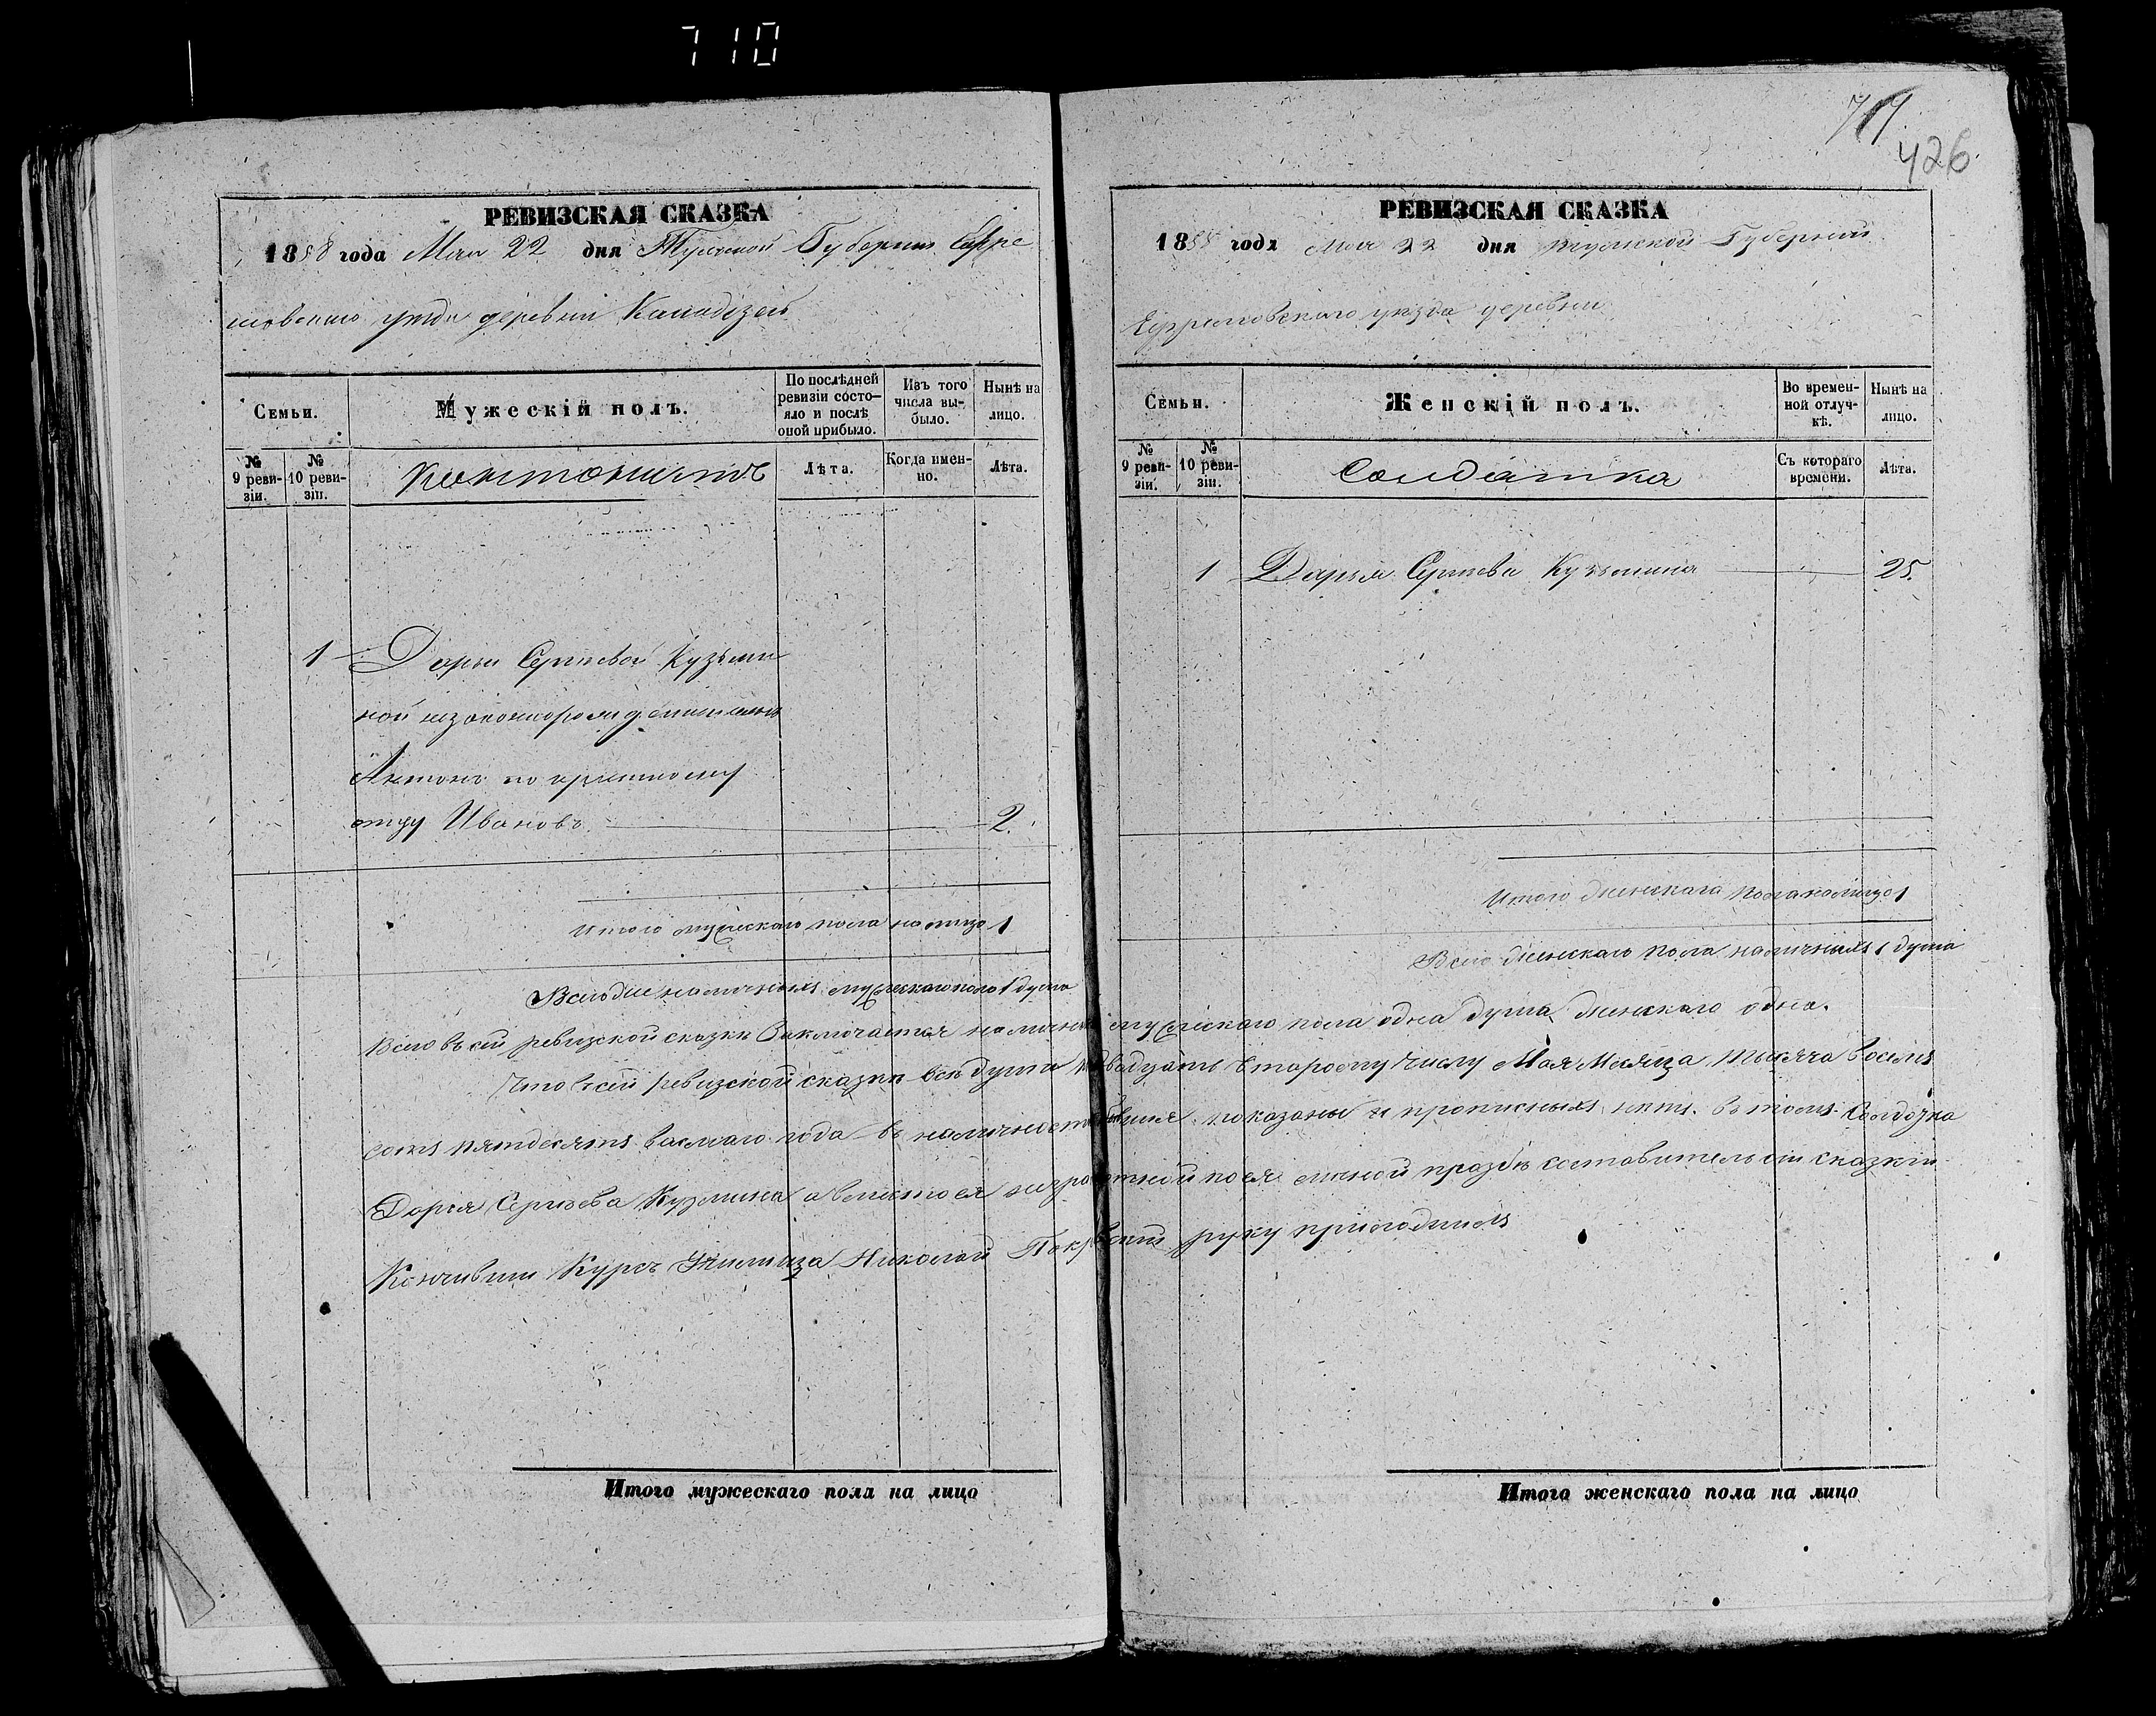 710
717
426
РЕВИЗСКАЯ СКАЗКА
1858 года Мая 22 дня Тульской Губернии Ефре
мовскаго уезда деревни
Семьи.
Мужескій полъ.
По послѣдней ревизіи состо-яло и послѣ оной прибыло.
Изъ того числа вы-было.
Нынѣ на лицо.
№ 9 реви-зіи.
№ 10 реви-зіи.
Кантонистъ
Лѣта.
Когда имен-но.
Лѣта.
1 Дарьи Сергѣевой Кузьми
ной незаконнорожденный сынъ
Антонъ по крестному
отцу Ивановъ. 2.
Итого мужескаго пола на лицо 1
Всего же наличныхъ мужескаго пола 1 душа
РЕВИЗСКАЯ СКАЗКА
1858 года Мая 22 дня Тульской Губернии
Ефремовского уезда деревни
Семьи.
Женскій полъ.
Во времен-ной отлуч-кѣ.
Нынѣ на лицо.
№ 9 реви-зіи.
№ 10 реви-зіи.
Солдатка
Съ котораго времени.
Лѣта.
1 Дарья Сергѣева Кузьмина 25.
Итого женскаго пола на лицо 1
Всего женскаго пола наличныхъ 1 душа
Всего въ сей ревизской сказкѣ заключается наличныхъ мужескаго пола одна душа, женскаго одна.
Что въ сей ревизской сказкѣ всѣ души къ двадцать второму числу Мая Месяца тысяча восемь
сотъ пятдесятъ васмаго года въ наличности показаны и прописныхъ нѣтъ. въ томъ Солдатка
Дарья Сергѣева Кузмина а вместо ея неграмотной по ея личной прозбѣ составитель сей сказки
Кончивши Курсъ Училища Николай Покровский руку приложилъ
Итого мужескаго пола на лицо
Итого женскаго пола на лицо